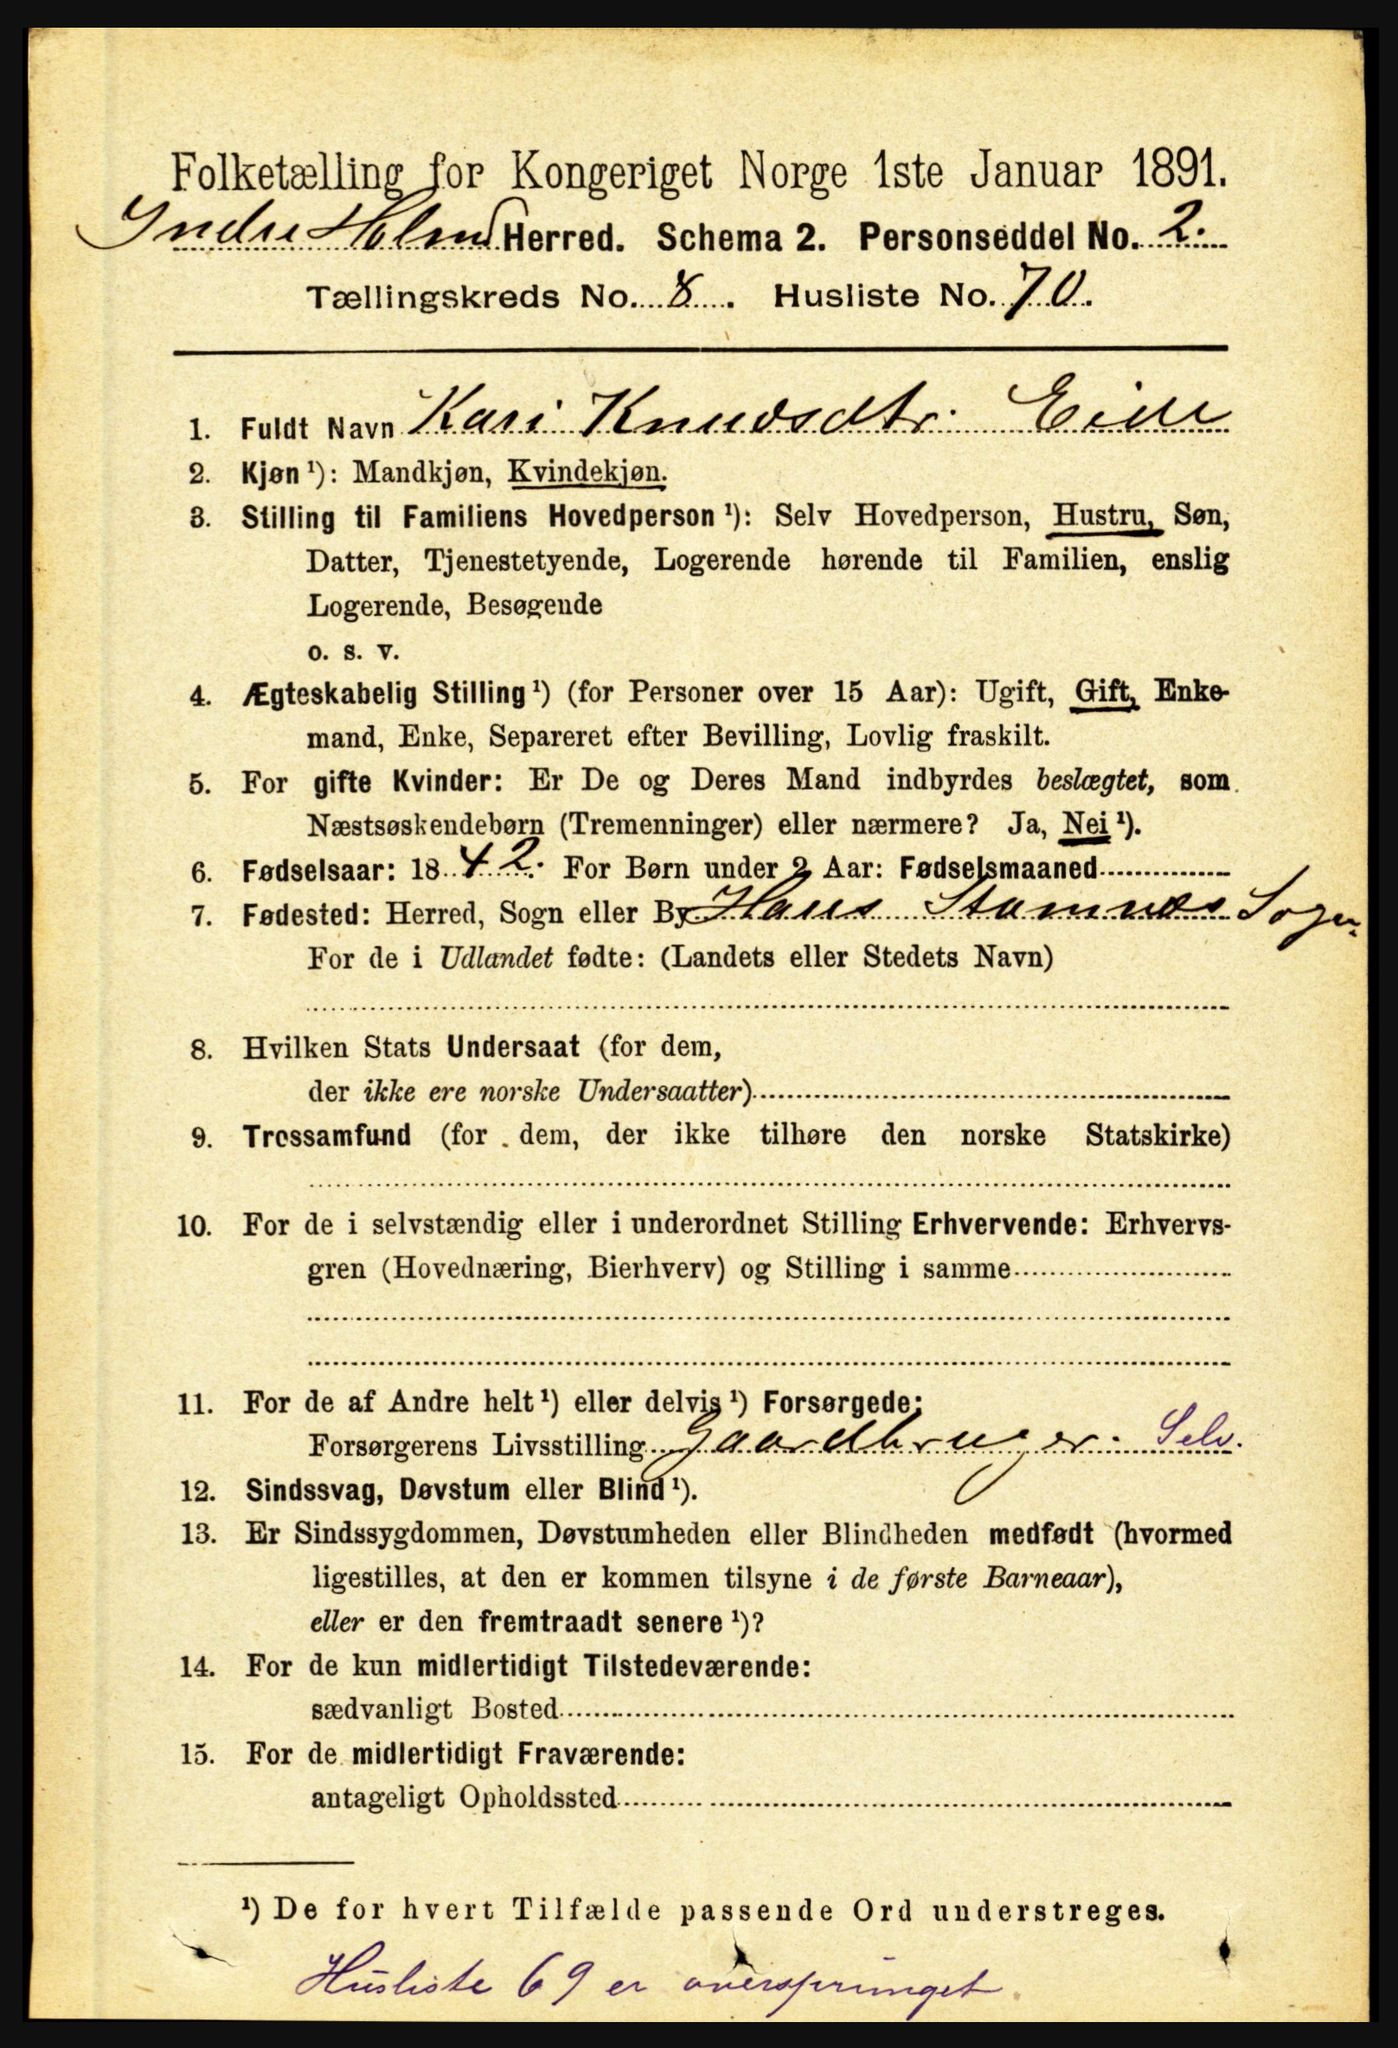 Folketælling for Kongeriget Norge 1ste Januar 1891.
Indre Holmd Herred. Schema 2. Personseddel No. 2.
Tællingskreds No. 8. Husliste No. 70.
1. Fuldt Navn Kari Knudsdtr. Eide
2. Kjøn¹): Mandkjøn, Kvindekjøn.
3. Stilling til Familiens Hovedperson¹): Selv Hovedperson, Hustru, Søn,
Datter, Tjenestetyende, Logerende hørende til Familien, enslig
Logerende, Besøgende
o. s. v.
4. Ægteskabelig Stilling¹) (for Personer over 15 Aar): Ugift, Gift, Enke-
mand, Enke, Separeret efter Bevilling, Lovlig fraskilt.
5. For gifte Kvinder: Er De og Deres Mand indbyrdes beslægtet, som
Næstsøskendebørn (Tremenninger) eller nærmere? Ja, Nei¹).
6. Fødselsaar: 1842. For Børn under 2 Aar: Fødselsmaaned
7. Fødested: Herred, Sogn eller By Haus Stamnæs Sogn
For de i Udlandet fødte: (Landets eller Stedets Navn)
8. Hvilken Stats Undersaat (for dem,
der ikke ere norske Undersaatter)
9. Trossamfund (for dem, der ikke tilhøre den norske Statskirke)
10. For de i selvstændig eller i underordnet Stilling Erhvervende: Erhvervs-
gren (Hovednæring, Bierhverv) og Stilling i samme
11. For de af Andre helt¹) eller delvis¹) Forsørgede:
Forsørgerens Livsstilling Gaardbruger. Selv.
12. Sindssvag, Døvstum eller Blind¹).
13. Er Sindssygdommen, Døvstumheden eller Blindheden medfødt (hvormed
ligestilles, at den er kommen tilsyne i de første Barneaar),
eller er den fremtraadt senere¹)?
14. For de kun midlertidigt Tilstedeværende:
sædvanligt Bosted
15. For de midlertidigt Fraværende:
antageligt Opholdssted
¹) De for hvert Tilfælde passende Ord understreges.
Husliste 69 er oversprunget.